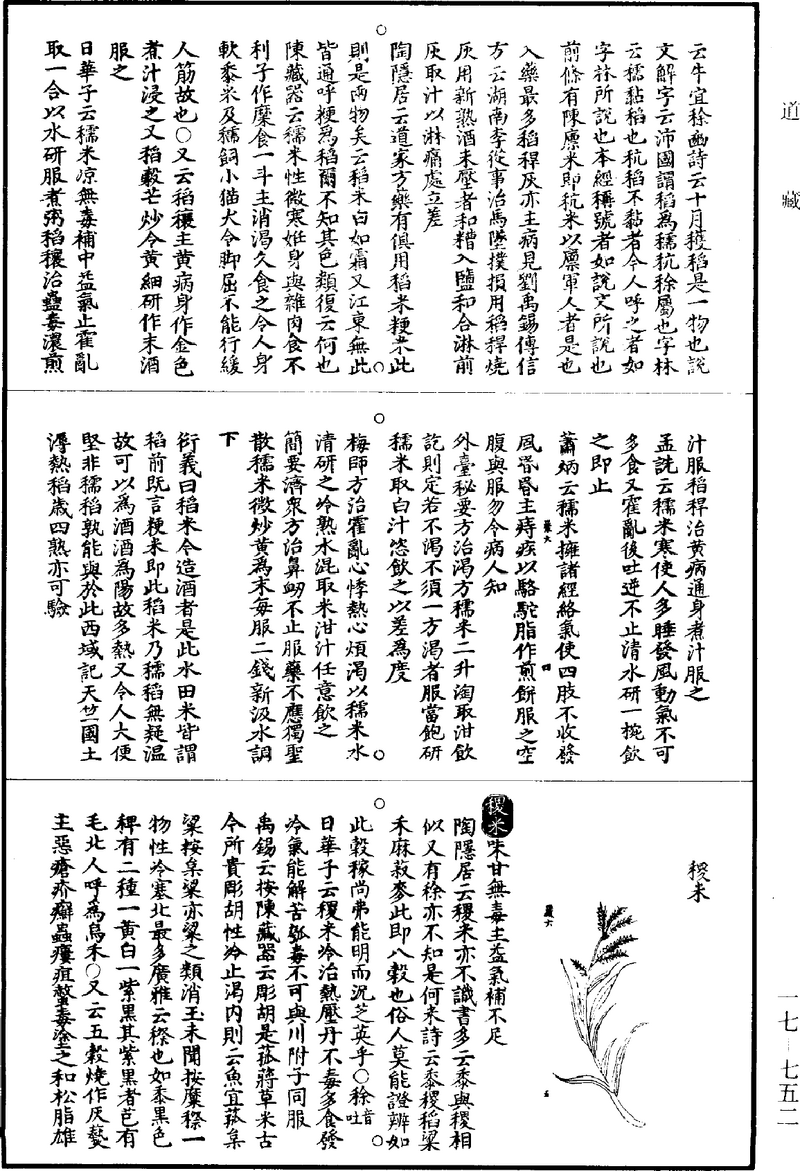 道藏
云牛宜稌豳詩云十月穫稻是一物也說
文解字云沛國謂稻為稬秔稌屬也字林
云稬黏稻也秔稻不黏者今人呼之者如
字林所說也本經稱號者如說文所說也
前條有陳廩米即秔米以廩軍人者是也
入藥最多稻稈灰亦主病見劉禹錫傳信
方云湖南李從事治馬墜撲損用稻稈燒
灰用新熟酒未壓者和糟入鹽和合淋前
灰取汁以淋痛處立差
陶隱居云道家方藥有俱用稻米粳米此
則是兩物矣云稻米白如霜又江東無此
皆通呼粳為稻爾不知其色類復云何也
陳藏器云糯米性微寒姙身與雜肉食不
利子作糜食一斗主消渴久食之令人身
軟黍米及糯飼小猫犬令脚屈不能行緩
人筋故也○又云稻穰主黃病身作金色
煮汁浸之又稻穀芒炒令黃細研作末酒
服之
日華子云糯米凉無毒補中益氣止霍亂
取一合以水研服煮粥稻穰治蠱毒濃煎
汁服稻稈治黃病通身煮汁服之
孟詵云糯米寒使人多睡發風動氣不可
多食又霍亂後吐逆不止清水研一椀飲
之即止
蕭炳云糯米擁諸經絡氣使四肢不收發
風昏昏主痔疾以駱駝脂作煎餅服之空
腹與服勿令病人知
外臺秘要方治渴方糯米二升淘取泔飲
訖則定若不渴不須一方渴者服當飽研
糯米取白汁恣飲之以差為度
梅師方治霍亂心悸熱心煩渴以糯米水
清研之冷熟水混取米泔汁任意飲之
簡要濟衆方治鼻衂不止服藥不應獨聖
散糯米微炒黃為末每服二錢新汲水調
下
衍義曰稻米今造酒者是此水田米皆謂
稻前既言粳米即此稻米乃糯稻無疑温
故可以為酒酒為陽故多熱又令人大便
堅非糯稻孰能與於此西域記天竺國土
溽熱稻歲四熟亦可驗
稷米
稷米味甘無毒主益氣補不足
陶隱居云稷米亦不識書多云黍與稷相
似又有稌亦不知是何米詩云黍稷稻粱
禾麻菽麥此即八穀也俗人莫能證辨如
此穀稼尚弗能明而況芝英乎○稌音吐
日華子云稷米冷治熱壓丹不毒多食發
冷氣能解苦瓠毒不可與川附子同服
禹錫云按陳藏器云彫胡是菰蔣草米古
今所貴彫胡性冷止渴内則云魚宜菰枲
粱按枲粱亦粱之類消玉未聞按糜穄一
物性冷塞北最多廣雅云穄也如黍黑色
稗有二種一黃白一紫黑其紫黑者芑有
毛北人呼為烏禾○又云五穀燒作灰爇
主惡瘡疥癬蟲瘻疽螫毒塗之和松脂雄
一七—七五二